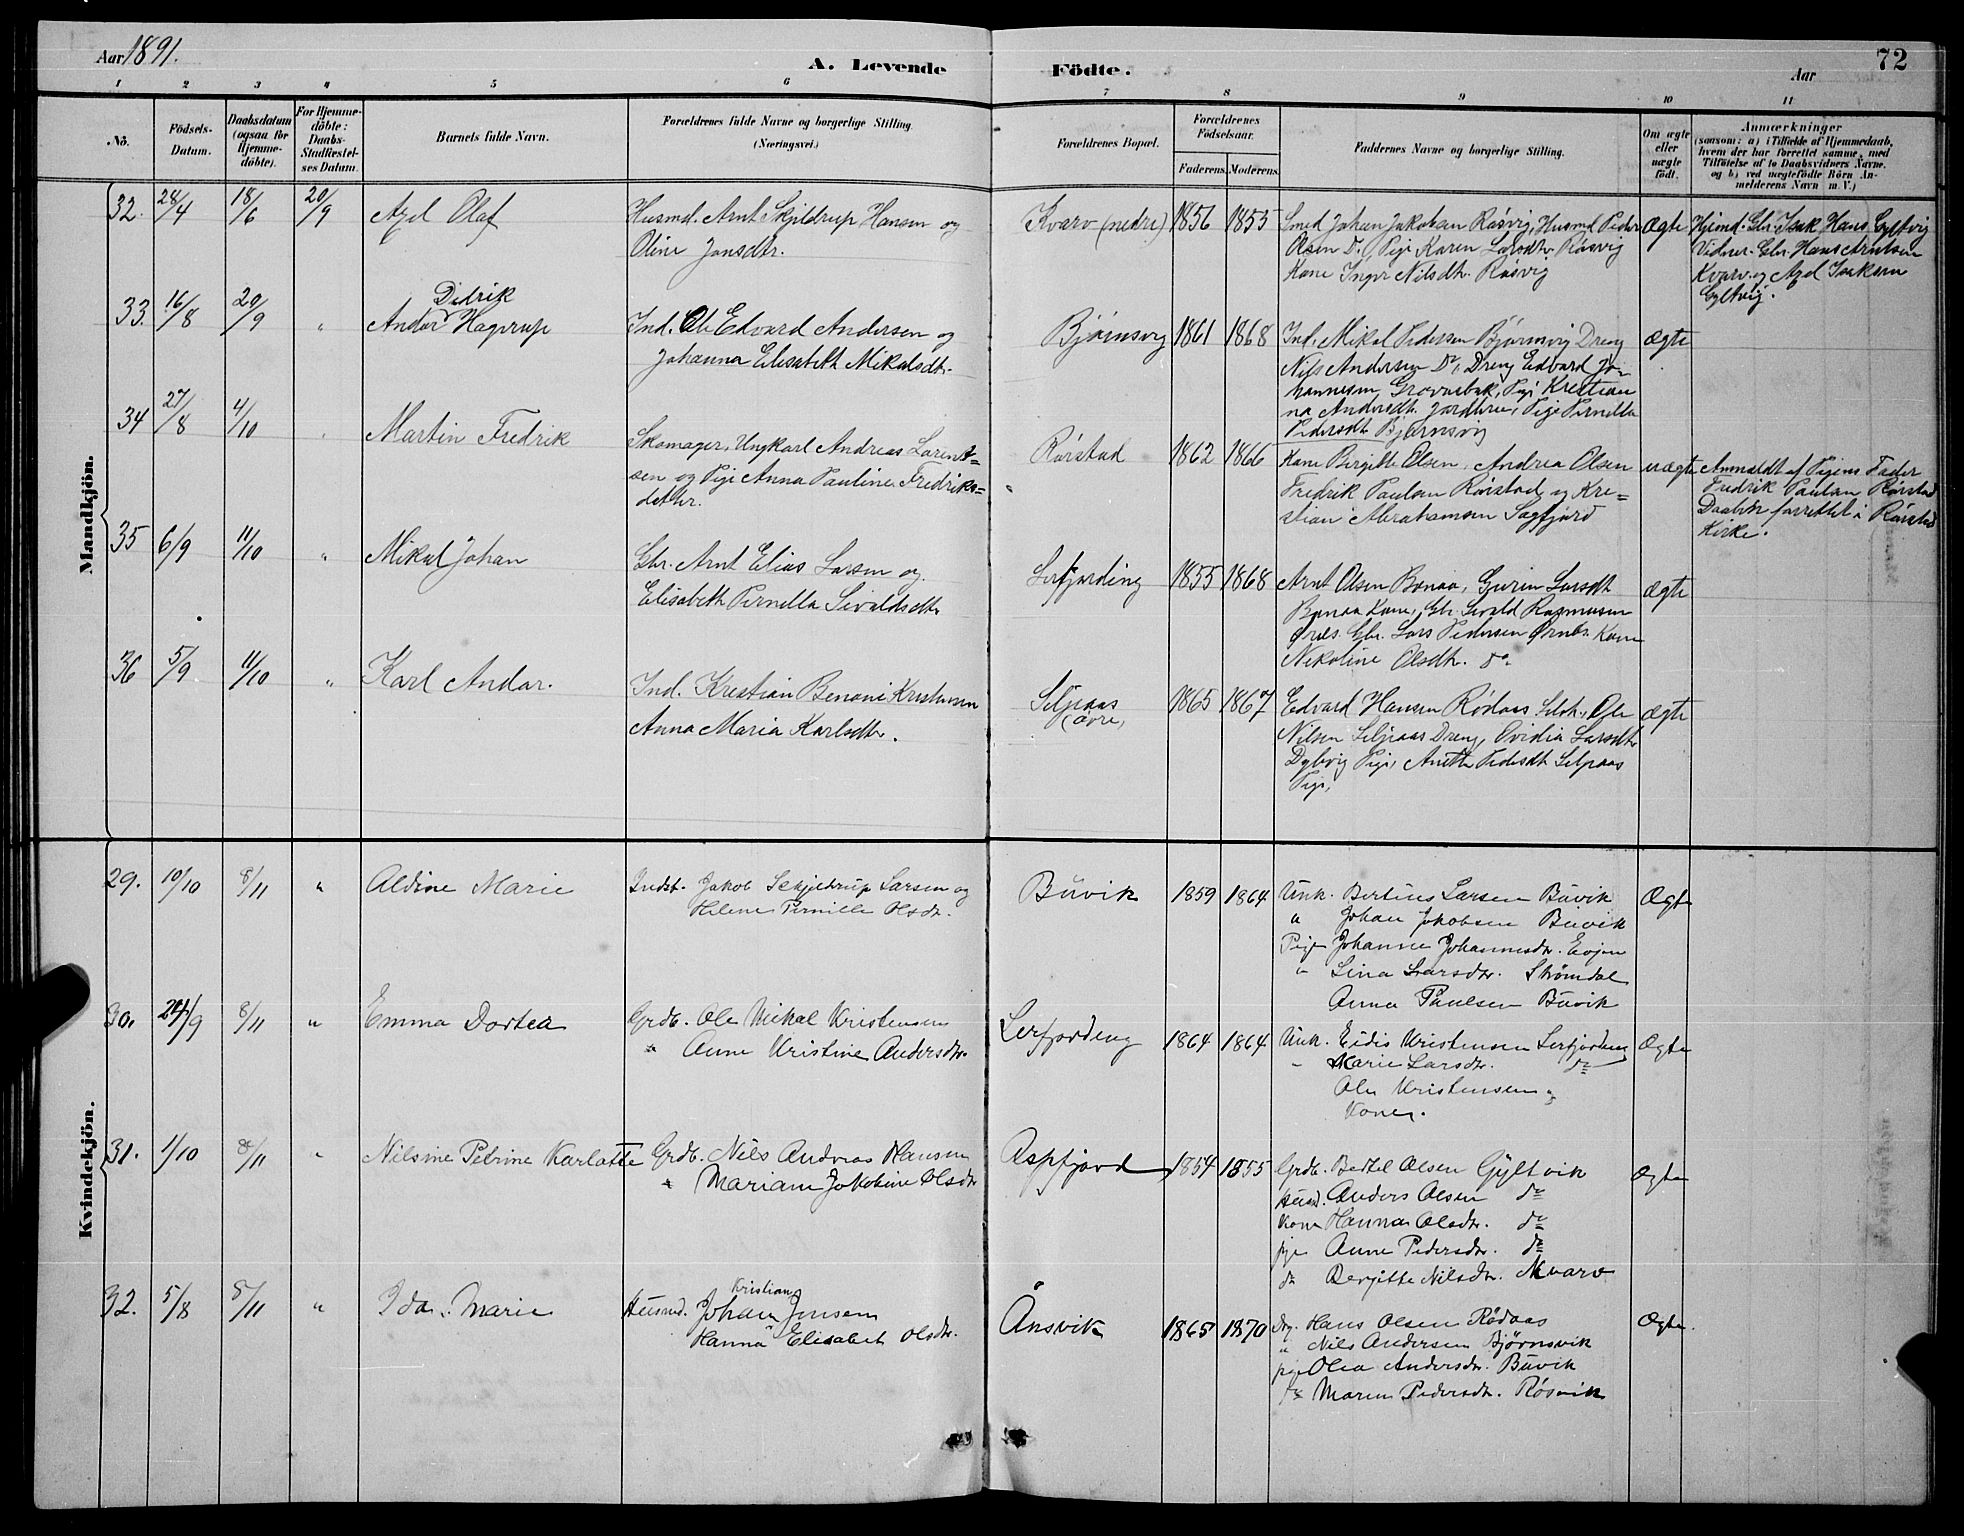 Aar 1891.
A. Levende
Födte.
Aar
72
1 2 3 4 5 6 7 8 9 10 11
No.
Födsels-Datum.
Daabsdatum (ogsaa for Hjemme-döbte).
For Hjemme-döbte: Daabs-Stadfæstelses Datum.
Barnets fulde Navn.
Forældrenes fulde Navne og borgerlige Stilling.
(Næringsvei.)
Forældrenes Bopæl.
Forældrenes Födselsaar.
Faderens. Moderens.
Faddernes Navne og borgerlige Stilling.
Om ægte eller uægte født.
Anmærkninger
(saasom: a) i Tilfælde af Hjemmedaab, hvem der har forrettet samme, med Tilföielse af to Daabsvidners Navne, og b) ved uægtefödte Börn Anmelderens Navn m. V.)
Mandkjön.
32. 28/4 18/6 20/9 Axel Olaf
Husmd. Arnt Skjildrup Hansen og
Oline Jonsdtr.
Kvarv (nedre) 1856 1855
Smed Johan Jakobsen Røsvig, Husmd Peder
Olsen Do, Pige Karen Larsdtr Røsvig
Kone Inger Nilsdtr. Røsvig
Ægte
Hjemd. Gbr. Isak Hans Gyltvig
Vidner. Gbr. Hans Arntsen
Kvarv og Axel Isaksen
Gyltvig.
33. 16/8 20/9 " Andor Didrik Hagerup
Ind. Ole Edvard Andersen og
Johanna Elisabeth Mikalsdtr.
Bjørnsvig 1861 1868
Ind. Mikal Pedersen Bjørnsvig Dreng
Nils Andersen Do, Dreng Edvard Jo-
hannesen, Pige Kristian
na Andersdt. Pige Pernilla
Pedersdtr Bjørnsvig
ægte
34 27/8 4/10 " Martin Fredrik
Skomager, Ungkarl Andreas Lorent=
sen og Pige Anna Pauline Fredriks=
datter.
Rørstad 1862 1866
Kone Birgitte Olsen, Andrea Olsen
Fredrik Paulsen Rørstad og Kre=
stian Abrahamsen Sagfjord
uægte
Anmeldt af Pigens Fader
Fredrik Paulsen Rørstad
Daaben forrettet i Rørstad
Kirke.
35 6/9 11/10 " Mikal Johan
Gbr. Arnt Elias Larsen og
Elisabeth Pernilla Sivaldsdtr
Lerfjarding 1855 1868
Arnt Olsen Bonaa, Gurine Larsdt
Bonaa Kone, Gbr. Sivald Rasmusen
Gbr. Lars Pedersen Kone
Nikoline Olsdtr. do
Ægte
36 5/9 11/10 " Karl Andor.
Ind. Krestian Benoni Kristensen
Anna Maria Karlsdtr.
Seljeaas
(øvre) 1865 1867
Edvard Hansen Rødaas Ole
Nilsen Seljeaas Dreng, Ovidia Larsdtr
Dybvig Pige, Anette Pedersdt Seljeaas
Pige,
Ægte
Kvindekjön.
29. 10/10 8/11 " Aldine Marie
Indst. Jakob Schjeldrup Larsen og
Helene Pernille Olsdr.
Buvik 1859 1864
Unk. Bertius Larsen Buvik
" Johan Jakobsen Buvik
Pige Johanne Johannesdr. Evjen
" Lina Larsdr. Strømdal
Anna Paulsen Buvik
Ægte
30. 24/9 8/11 " Emma Dortea
Grdb. Ole Mikal Kristensen
" Anne Kristine Andersdtr.
Lerfjording 1864 1864
Unk. Eidis Kristensen Lerfjording
" Marie Larsdtr. do
Ole Kristensen og
Kone.
Ægte
31. 1/10 8/11 " Nilsine Petrine Karlotte
Grdb. Nils Andreas Hansen
" Mariane Jakobine Olsdr
Aspfjord 1854 1855
Grdb. Bertel Olsen Gyltvik
Husmd. Anders Olsen do
Kone Hanna Olsdtr. do
pige Anne Pedersdtr. do
do Bergitte Nilsdtr. Kvarv
Ægte
32. 5/8 8/11 " Ida Marie
Husmd. Johan Kristian Jensen
Hanna Elisabet Olsdr.
Ånsvik 1865 1870
Dg. Hans Olsen Rødaas
" Nils Andersen Bjørnsvik
pige Olea Andersdr. Buvik
do Maren Pedersdtr. Røsvik
Ægte.